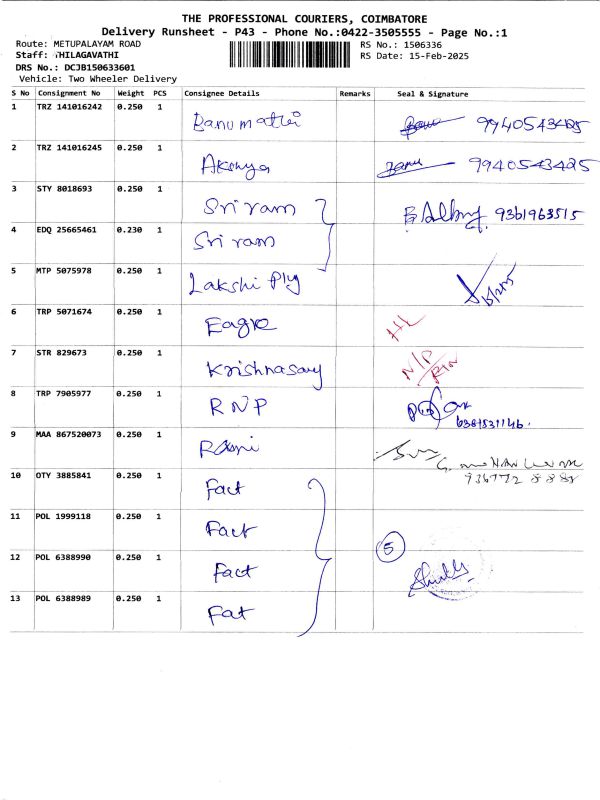 THE PROFESSIONAL COURIERS, COIMBATORE
Delivery Runsheet - P43 - Phone No.:0422-3505555 - Page No.:1
Route: METUPALAYAM ROAD RS No.: 1506336
Staff: THILAGAVATHI RS Date: 15-Feb-2025
DRS No.: DCJB150633601
Vehicle: Two Wheeler Delivery
S No Consignment No Weight PCS Consignee Details Remarks Seal & Signature
1 TRZ 141016242 0.250 1 Banumathi 9940543425
2 TRZ 141016245 0.250 1 Akshya 9940543425
3 STY 8018693 0.250 1 Sriram 9361963515
4 EDQ 25665461 0.230 1 Sriram
5 MTP 5075978 0.250 1 Lakshi Ply
6 TRP 5071674 0.250 1 Eagle
7 STR 829673 0.250 1 Krishnasamy N/P
8 TRP 7905977 0.250 1 RNP
9 MAA 867520073 0.250 1 Rani
10 OTY 3885841 0.250 1 Fact
11 POL 1999118 0.250 1 Fact
12 POL 6388990 0.250 1 Fact 5
13 POL 6388989 0.250 1 Fat